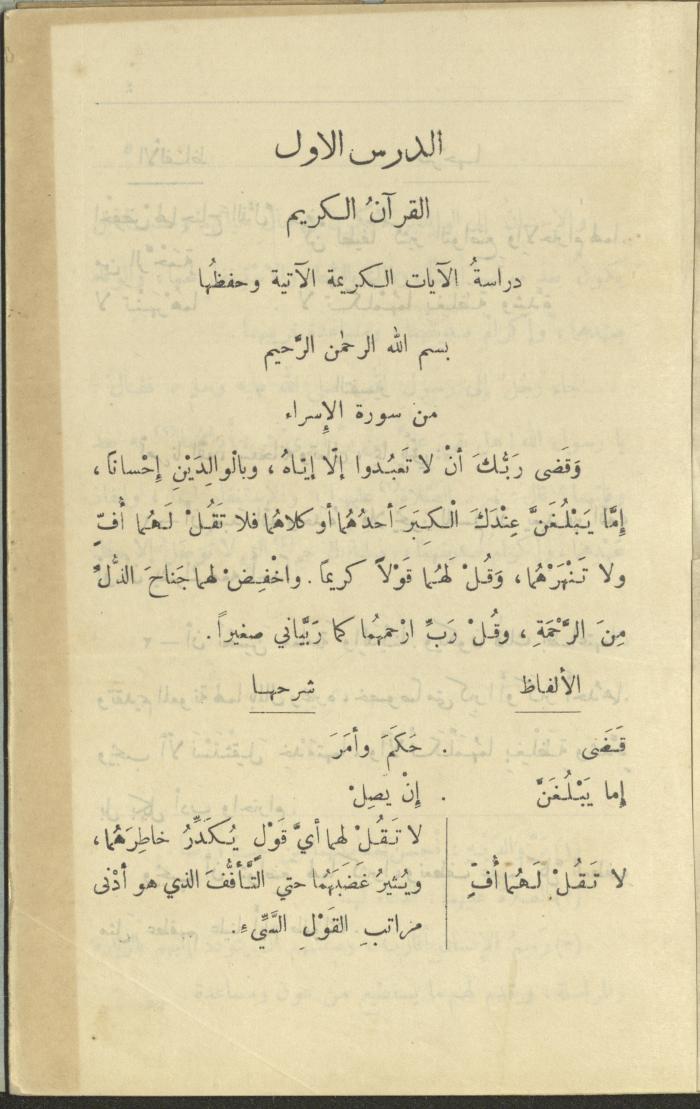 الدرس الاول
القرآنُ الكريم
دراسةُ الآيات الكريمة الآتية وحفظُها
بسم الله الرحمن الرَّحيم
من سورة الإِسراء
وَقَضى رَبُّكَ أنْ لا تَعبُدوا إلّا إيّاهُ ، وبالْوالِدَيْنِ إحْساناً ،
إمَّا يَبْلُغَنَّ عِنْدَكَ الْكِبَرَ أحدُهُما أو كلاهُما فلا تَقُلْ لَهُما أُفٍّ
ولا تَنْهَرْهُما ، وَقُلْ لَهُما قَوْلاً كريماً . واخْفِضْ لهما جَناحَ الذُّلِّ
مِنَ الرَّحْمَةِ ، وقُلْ رَبِّ ارْحمهُما كما رَبَّياني صغيراً .
الألفاظ شرحها
قَضَى . حَكَمَ وأمَرَ
إما يَبْلُغَنَّ . إنْ يَصِلْ
لا تَقُلْ لهما أيَّ قَوْلٍ يُكَدِّرُ خاطِرَهُما ،
لا تَقُلْ لَهُما أُفٍّ ويُثيرُ غَضَبَهُما حتي التَّأفُّفَ الذي هو أدْنى
مراتبِ القَوْلِ السَّيِّيءِ .